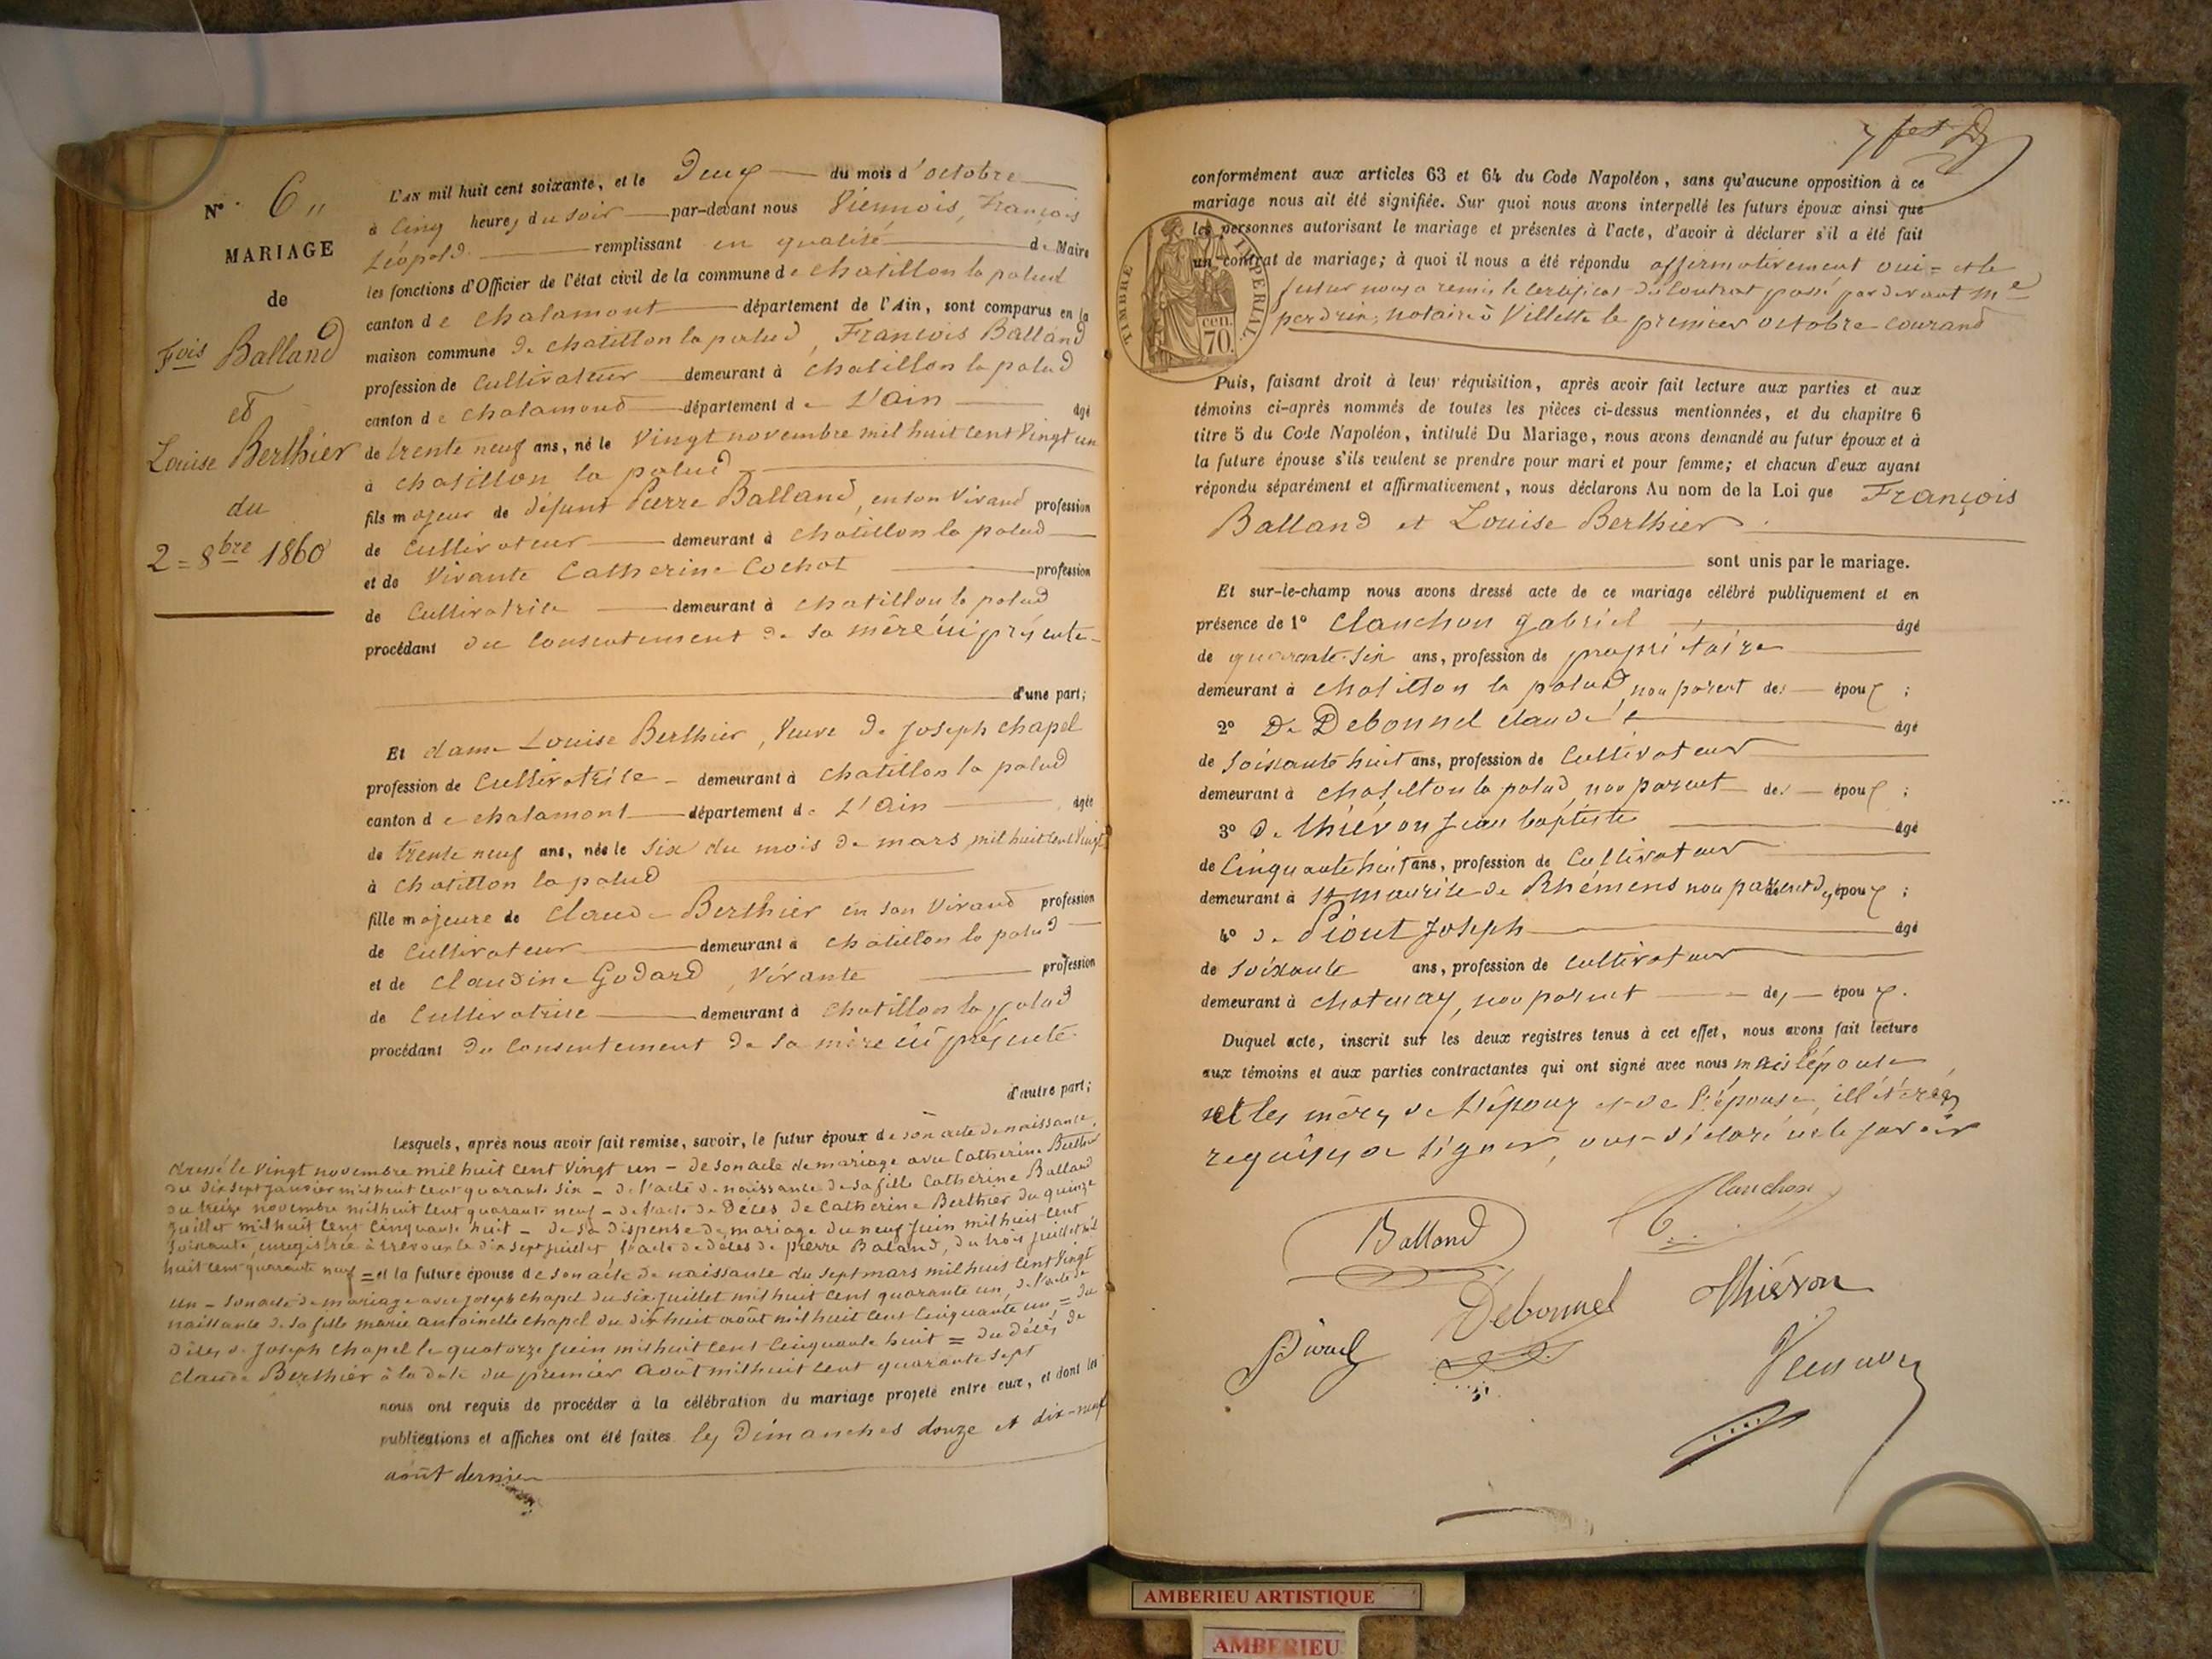 N° 6 "
MARIAGE
de
Fois Balland
et
Louise Berthier
du
2 = 8bre 1860
L'an mil huit cent soixante, et le Deux du mois d'octobre
à cinq heures du soir par-devant nous Viennois, François
Léopold remplissant en qualité de Maire
les fonctions d'Officier de l'état civil de la commune de chatillon la palud
canton de chalamont département de l'Ain, sont comparus en la
maison commune de chatillon la palud, François Balland
profession de cultivateur demeurant à chatillon la palud
canton de chalamond département de L'Ain âgé
de trente neuf ans, né le vingt novembre mil huit cent vingt un
à chatillon la palud
fils majeur de défunt Pierre Balland, en son vivand profession
de cultivateur demeurant à chatillon la palud
et de vivante Catherine Cochet profession
de cultivatrice demeurant à chatillon la palud
procédant du consentement de sa mère ici présente
d'une part;
Et dame Louise Berthier, veuve de Joseph chapel
profession de cultivatrice demeurant à chatillon la palud
canton de chalamont département de L'Ain âgée
de trente neuf ans, née le six du mois de mars mil huit cent vingt
à chatillon la palud
fille majeure de claude Berthier en son vivand profession
de cultivateur demeurant à chatillon la palud
et de claudine Godard, vivante profession
de cultivatrice demeurant à chatillon la palud
procédant du consentement de sa mère ici présente
d'autre part;
Lesquels, après nous avoir fait remise, savoir, le futur époux de son acte de naissance
dressé le vingt novembre mil huit cent vingt un - de son acte de mariage avec Catherine Berthier
du dix sept janvier mil huit cent quarante six - de l'acte de naissance de sa fille Catherine Balland
du treize novembre mil huit cent quarante neuf - de l'acte de Décès de Catherine Berthier du quinze
juillet mil huit cent cinquante huit - de sa dispense de mariage du neuf juin mil huit cent
soixante, enregistrée à trévoux le dix sept juillet, l'acte de décès de pierre Baland, du trois juillet mil
huit cent quarante neuf = et la future épouse de son acte de naissance du sept mars mil huit cent vingt
un - son acte de mariage avec joseph chapel du six juillet mil huit cent quarante un, de l'acte de
naissance de sa fille marie antoinette chapel du dix huit août mil huit cent cinquante un = du
décès de Joseph chapel le quatorze juin mil huit cent cinquante huit = du décès de
claude Berthier à la date du premier août mil huit cent quarante sept
nous ont requis de procéder à la célébration du mariage projeté entre eux, et dont les
publications et affiches ont été faites les dimanches douze et dix-neuf
août dernier
conformément aux articles 63 et 64 du Code Napoléon, sans qu'aucune opposition à ce
mariage nous ait été signifiée. Sur quoi nous avons interpellé les futurs époux ainsi que
les personnes autorisant le mariage et présentes à l'acte, d'avoir à déclarer s'il a été fait
un contrat de mariage; à quoi il nous a été répondu affirmativement oui = et le
futur nous a remis le certificat du contrat passé par devant me
perdrix, notaire à Villette le premier octobre courand
TIMBRE IMPERIAL
70 cen.
Puis, faisant droit à leur réquisition, après avoir fait lecture aux parties et aux
témoins ci-après nommés de toutes les pièces ci-dessus mentionnées, et du chapitre 6
titre 5 du Code Napoléon, intitulé Du Mariage, nous avons demandé au futur époux et à
la future épouse s'ils veulent se prendre pour mari et pour femme; et chacun d'eux ayant
répondu séparément et affirmativement, nous déclarons Au nom de la Loi que François
Balland et Louise Berthier
sont unis par le mariage.
Et sur-le-champ nous avons dressé acte de ce mariage célébré publiquement et en
présence de 1° Clanchon gabriel âgé
de quarante six ans, profession de propriétaire
demeurant à chatillon la palud non parent des époux ;
2° De Debonnel claude âgé
de soixante huit ans, profession de cultivateur
demeurant à chatillon la palud, non parent des époux ;
3° de thiévon jean baptiste âgé
de cinquante huit ans, profession de cultivateur
demeurant à St maurice de Rhémens non parent des époux ;
4° de Piout Joseph âgé
de soixante ans, profession de cultivateur
demeurant à chatenay, non parent des époux.
Duquel acte, inscrit sur les deux registres tenus à cet effet, nous avons fait lecture
aux témoins et aux parties contractantes qui ont signé avec nous mais l'épouse
et les mères de l'époux et de l'épouse, illétrées
requises de signer, ont déclaré ne le savoir
Balland
Clanchon
Debonnel
Thiévon
Viennois
AMBERIEU ARTISTIQUE
AMBERIEU